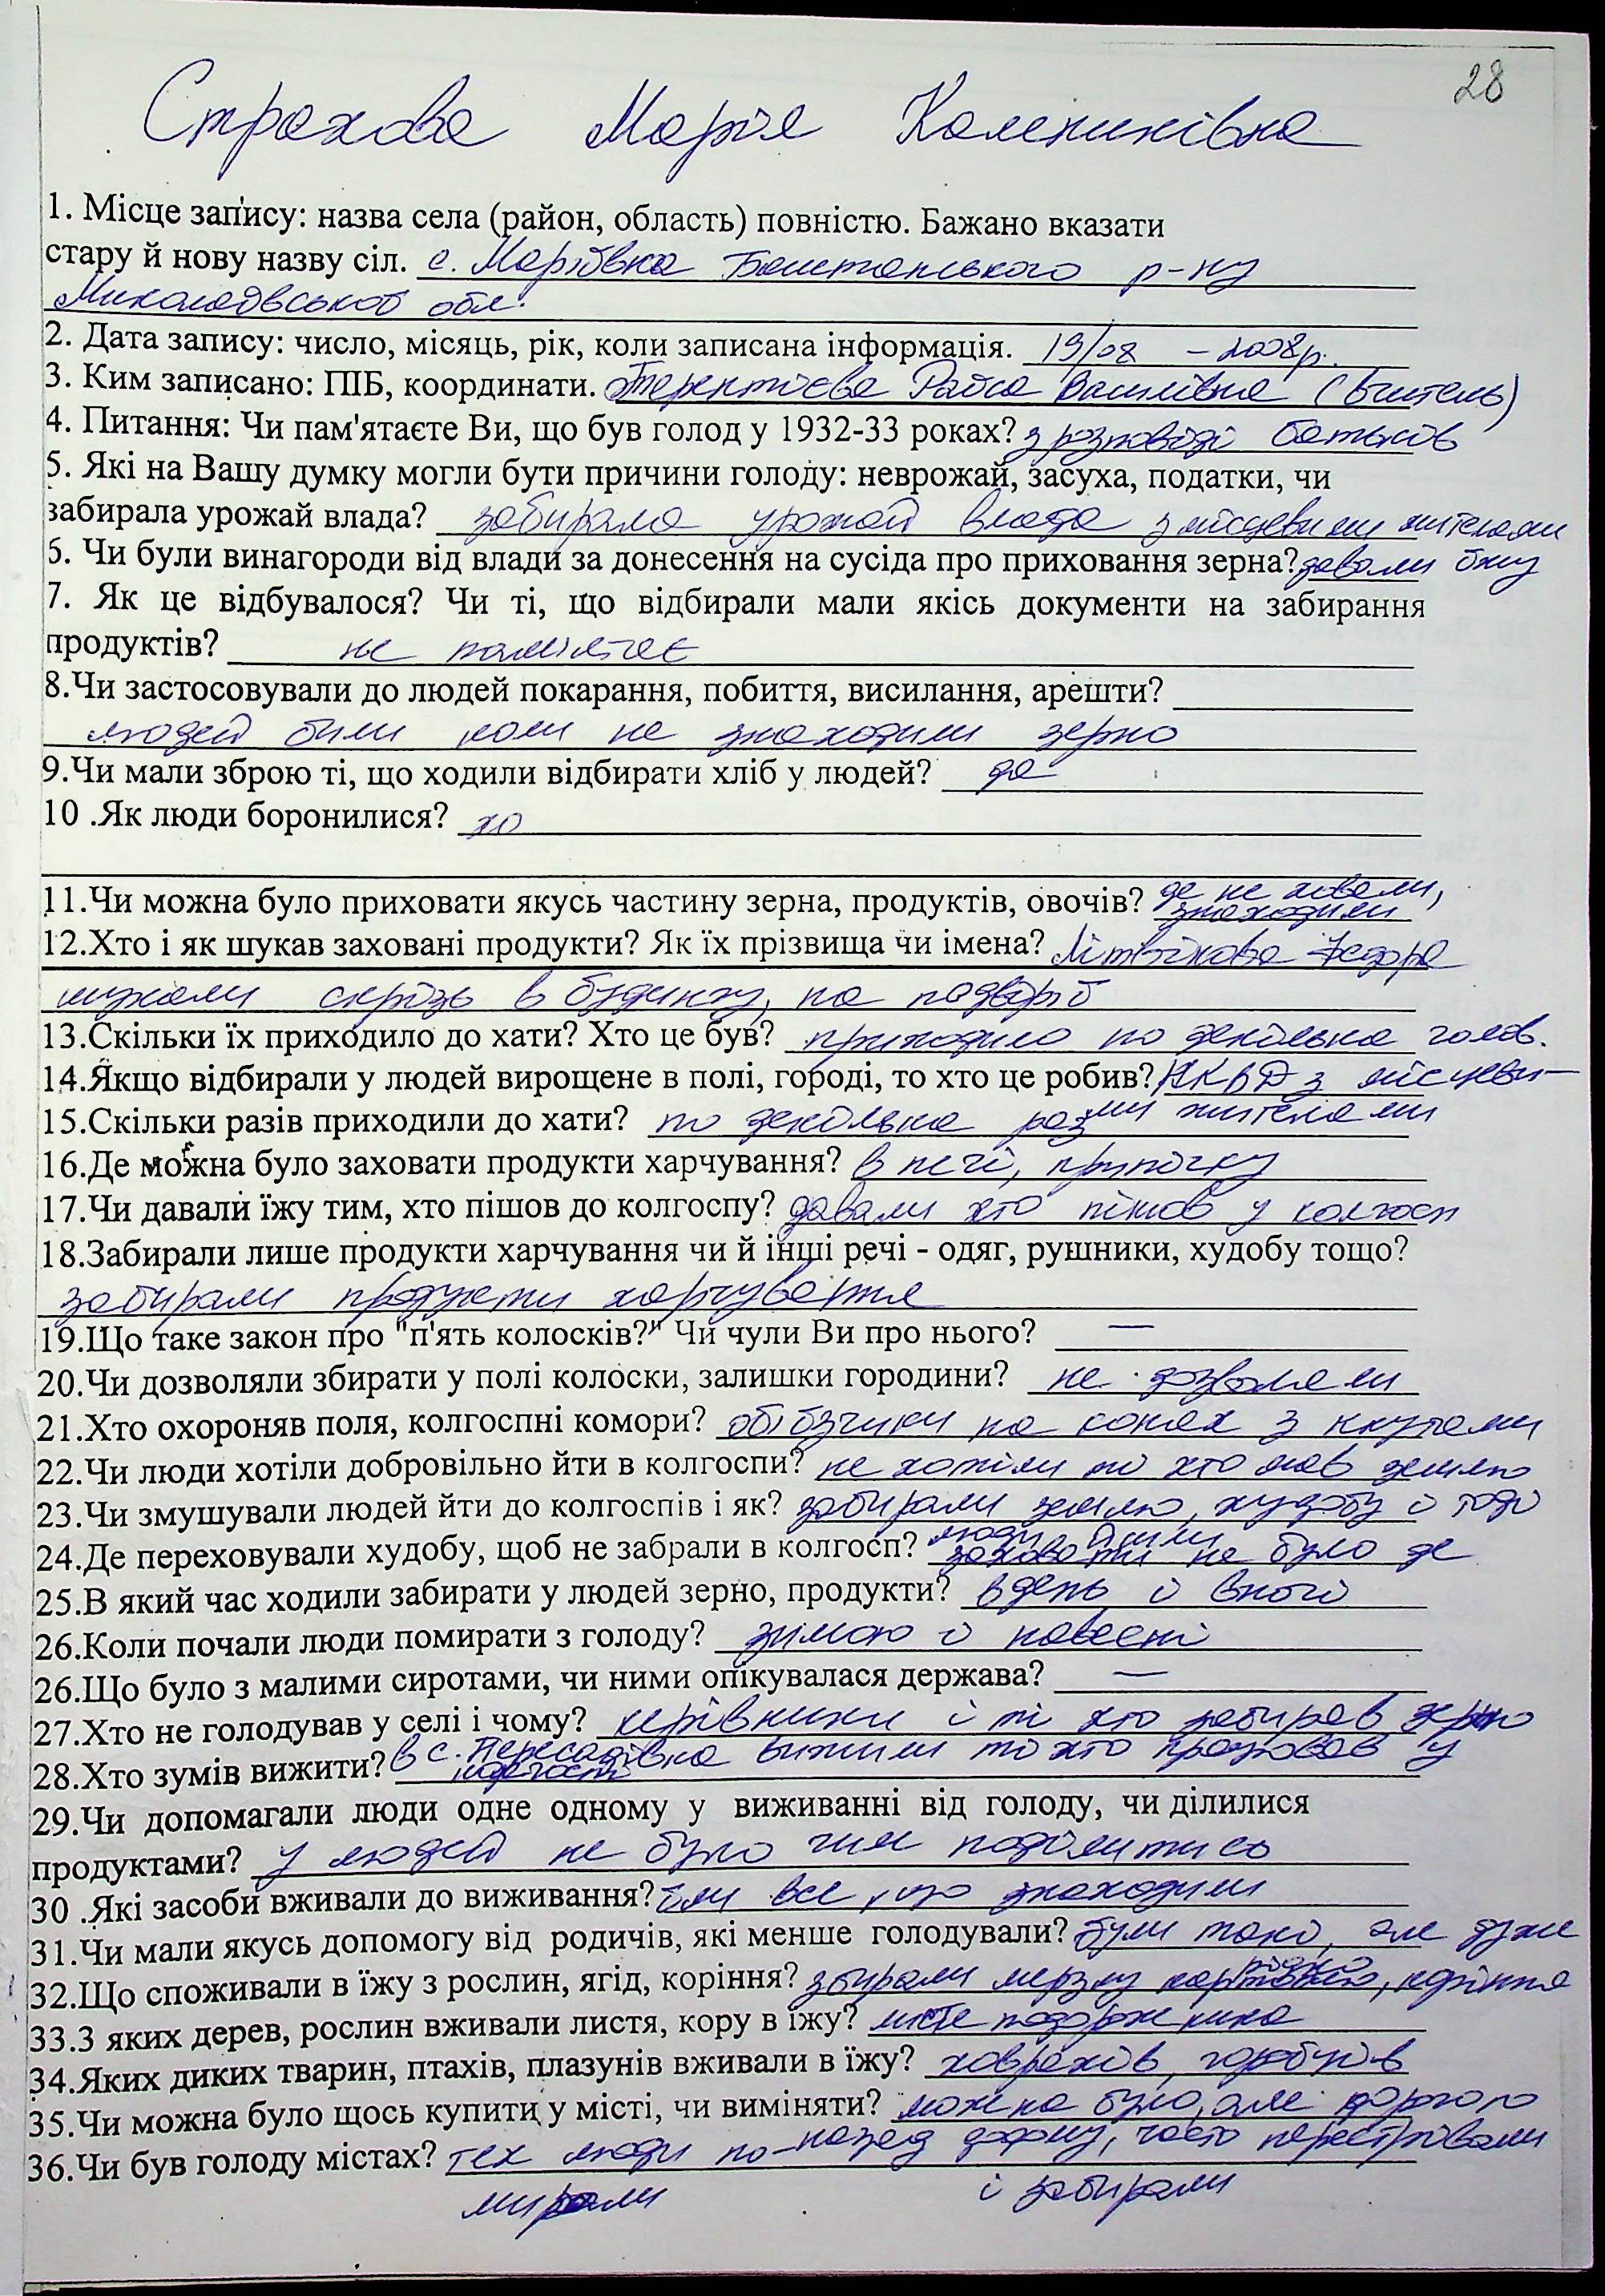 28
Страхова Марія Калениківна
1. Місце запису: назва села (район, область) повністю. Бажано вказати
стару й нову назву сіл. с. Мар'ївка Баштанського р-ну
Миколаївської обл.
2. Дата запису: число, місяць, рік, коли записана інформація. 19/08 – 2008р.
3. Ким записано: ПІБ, координати. Терентієва Раїса Василівна (вчитель)
4. Питання: Чи пам'ятаєте Ви, що був голод у 1932-33 роках? з розповіді батьків
5. Які на Вашу думку могли бути причини голоду: неврожай, засуха, податки, чи
забирала урожай влада? забирала урожай влада з місцевими жителями
6. Чи були винагороди від влади за донесення на сусіда про приховання зерна? давали їжу
7. Як це відбувалося? Чи ті, що відбирали мали якісь документи на забирання
продуктів? не памятає
8.Чи застосовували до людей покарання, побиття, висилання, арешти?
людей били коли не знаходили зерно
9.Чи мали зброю ті, що ходили відбирати хліб у людей? да
10 .Як люди боронилися?
11.Чи можна було приховати якусь частину зерна, продуктів, овочів? де не ховали,
знаходили
12.Хто і як шукав заховані продукти? Як їх прізвища чи імена? Літвінова Федора
шукали скрізь в будинку, на подвір'ї
13.Скільки їх приходило до хати? Хто це був? приходило по декілька голов.
14.Якщо відбирали у людей вирощене в полі, городі, то хто це робив? НКВД з місцеви-
ми жителами
15.Скільки разів приходили до хати? по декілька раз
16.Де можна було заховати продукти харчування? в печі, припічку
17.Чи давали їжу тим, хто пішов до колгоспу? давали хто пішов у колгосп
18.Забирали лише продукти харчування чи й інші речі - одяг, рушники, худобу тощо?
забирали продукти харчування
19.Що таке закон про "п'ять колосків?" Чи чули Ви про нього? —
20.Чи дозволяли збирати у полі колоски, залишки городини? не дозволяли
21.Хто охороняв поля, колгоспні комори? обїзчики на конях з кнутами
22.Чи люди хотіли добровільно йти в колгоспи? не хотіли то хто мав землю
23.Чи змушували людей йти до колгоспів і як? забирали землю, худобу і тоді
люди йшли
24.Де переховували худобу, щоб не забрали в колгосп? заховати не було де
25.В який час ходили забирати у людей зерно, продукти? вдень і вночі
26.Коли почали люди помирати з голоду? зимою і навесні
26.Що було з малими сиротами, чи ними опікувалася держава? —
27.Хто не голодував у селі і чому? керівники і ті хто забирав зерно
28.Хто зумів вижити? в с. Пересадівка вижили то хто працював у
колгоспі
29.Чи допомагали люди одне одному у виживанні від голоду, чи ділилися
продуктами? у людей не було чим поділитись
30 .Які засоби вживали до виживання? їли все, що знаходили
31.Чи мали якусь допомогу від родичів, які менше голодували? були такі, але дуже
рідко
32.Що споживали в їжу з рослин, ягід, коріння? збирали мерзлу картоплю, коріння
33.З яких дерев, рослин вживали листя, кору в їжу? листе подорожника
34.Яких диких тварин, птахів, плазунів вживали в їжу? ховрахів, горобців
35.Чи можна було щось купити у місті, чи виміняти? можна було, але дорогою
назад додому, часто перестрівали
і забирали
36.Чи був голоду містах? тех люди по-
мирали